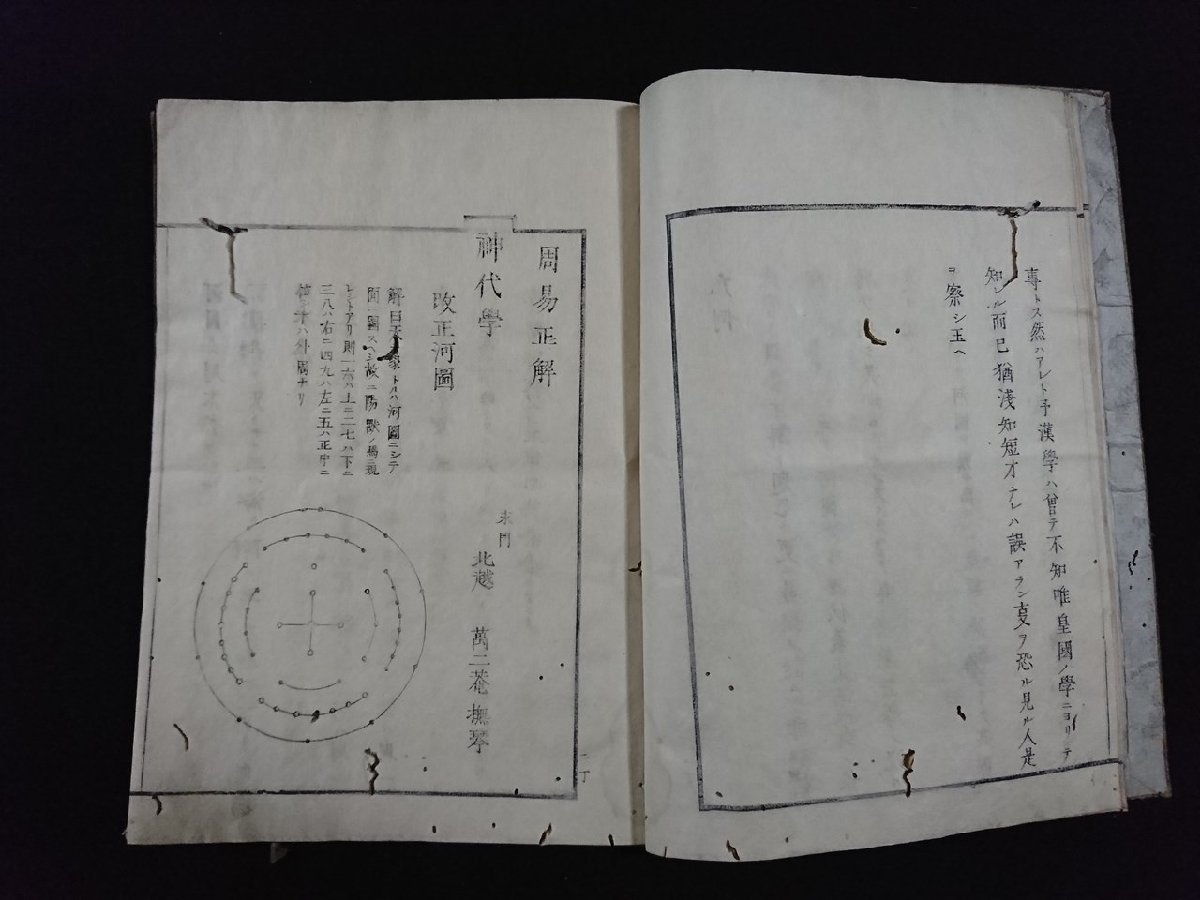 專トス然ハアレト予漢學ハ僧テ不知唯皇國ノ學ニヨリテ
知ル而已猶淺知短才ナレハ誤アラン𠮷ヲ恐ル見ル人是
ヲ察シ玉ヘ
周易正解
神代學
末門
北越 萬二菴撫琴
改正河圖
解曰天 象トルハ河圖ニシテ
圖スヘシ故ニ陽獸ノ馬ニ現
レシトアリ則一六ハ上ニ二七ハ下ニ
三八ハ右ニ四九ハ左ニ五ハ正中ニ
位シ十ハ外周ナリ
一丁